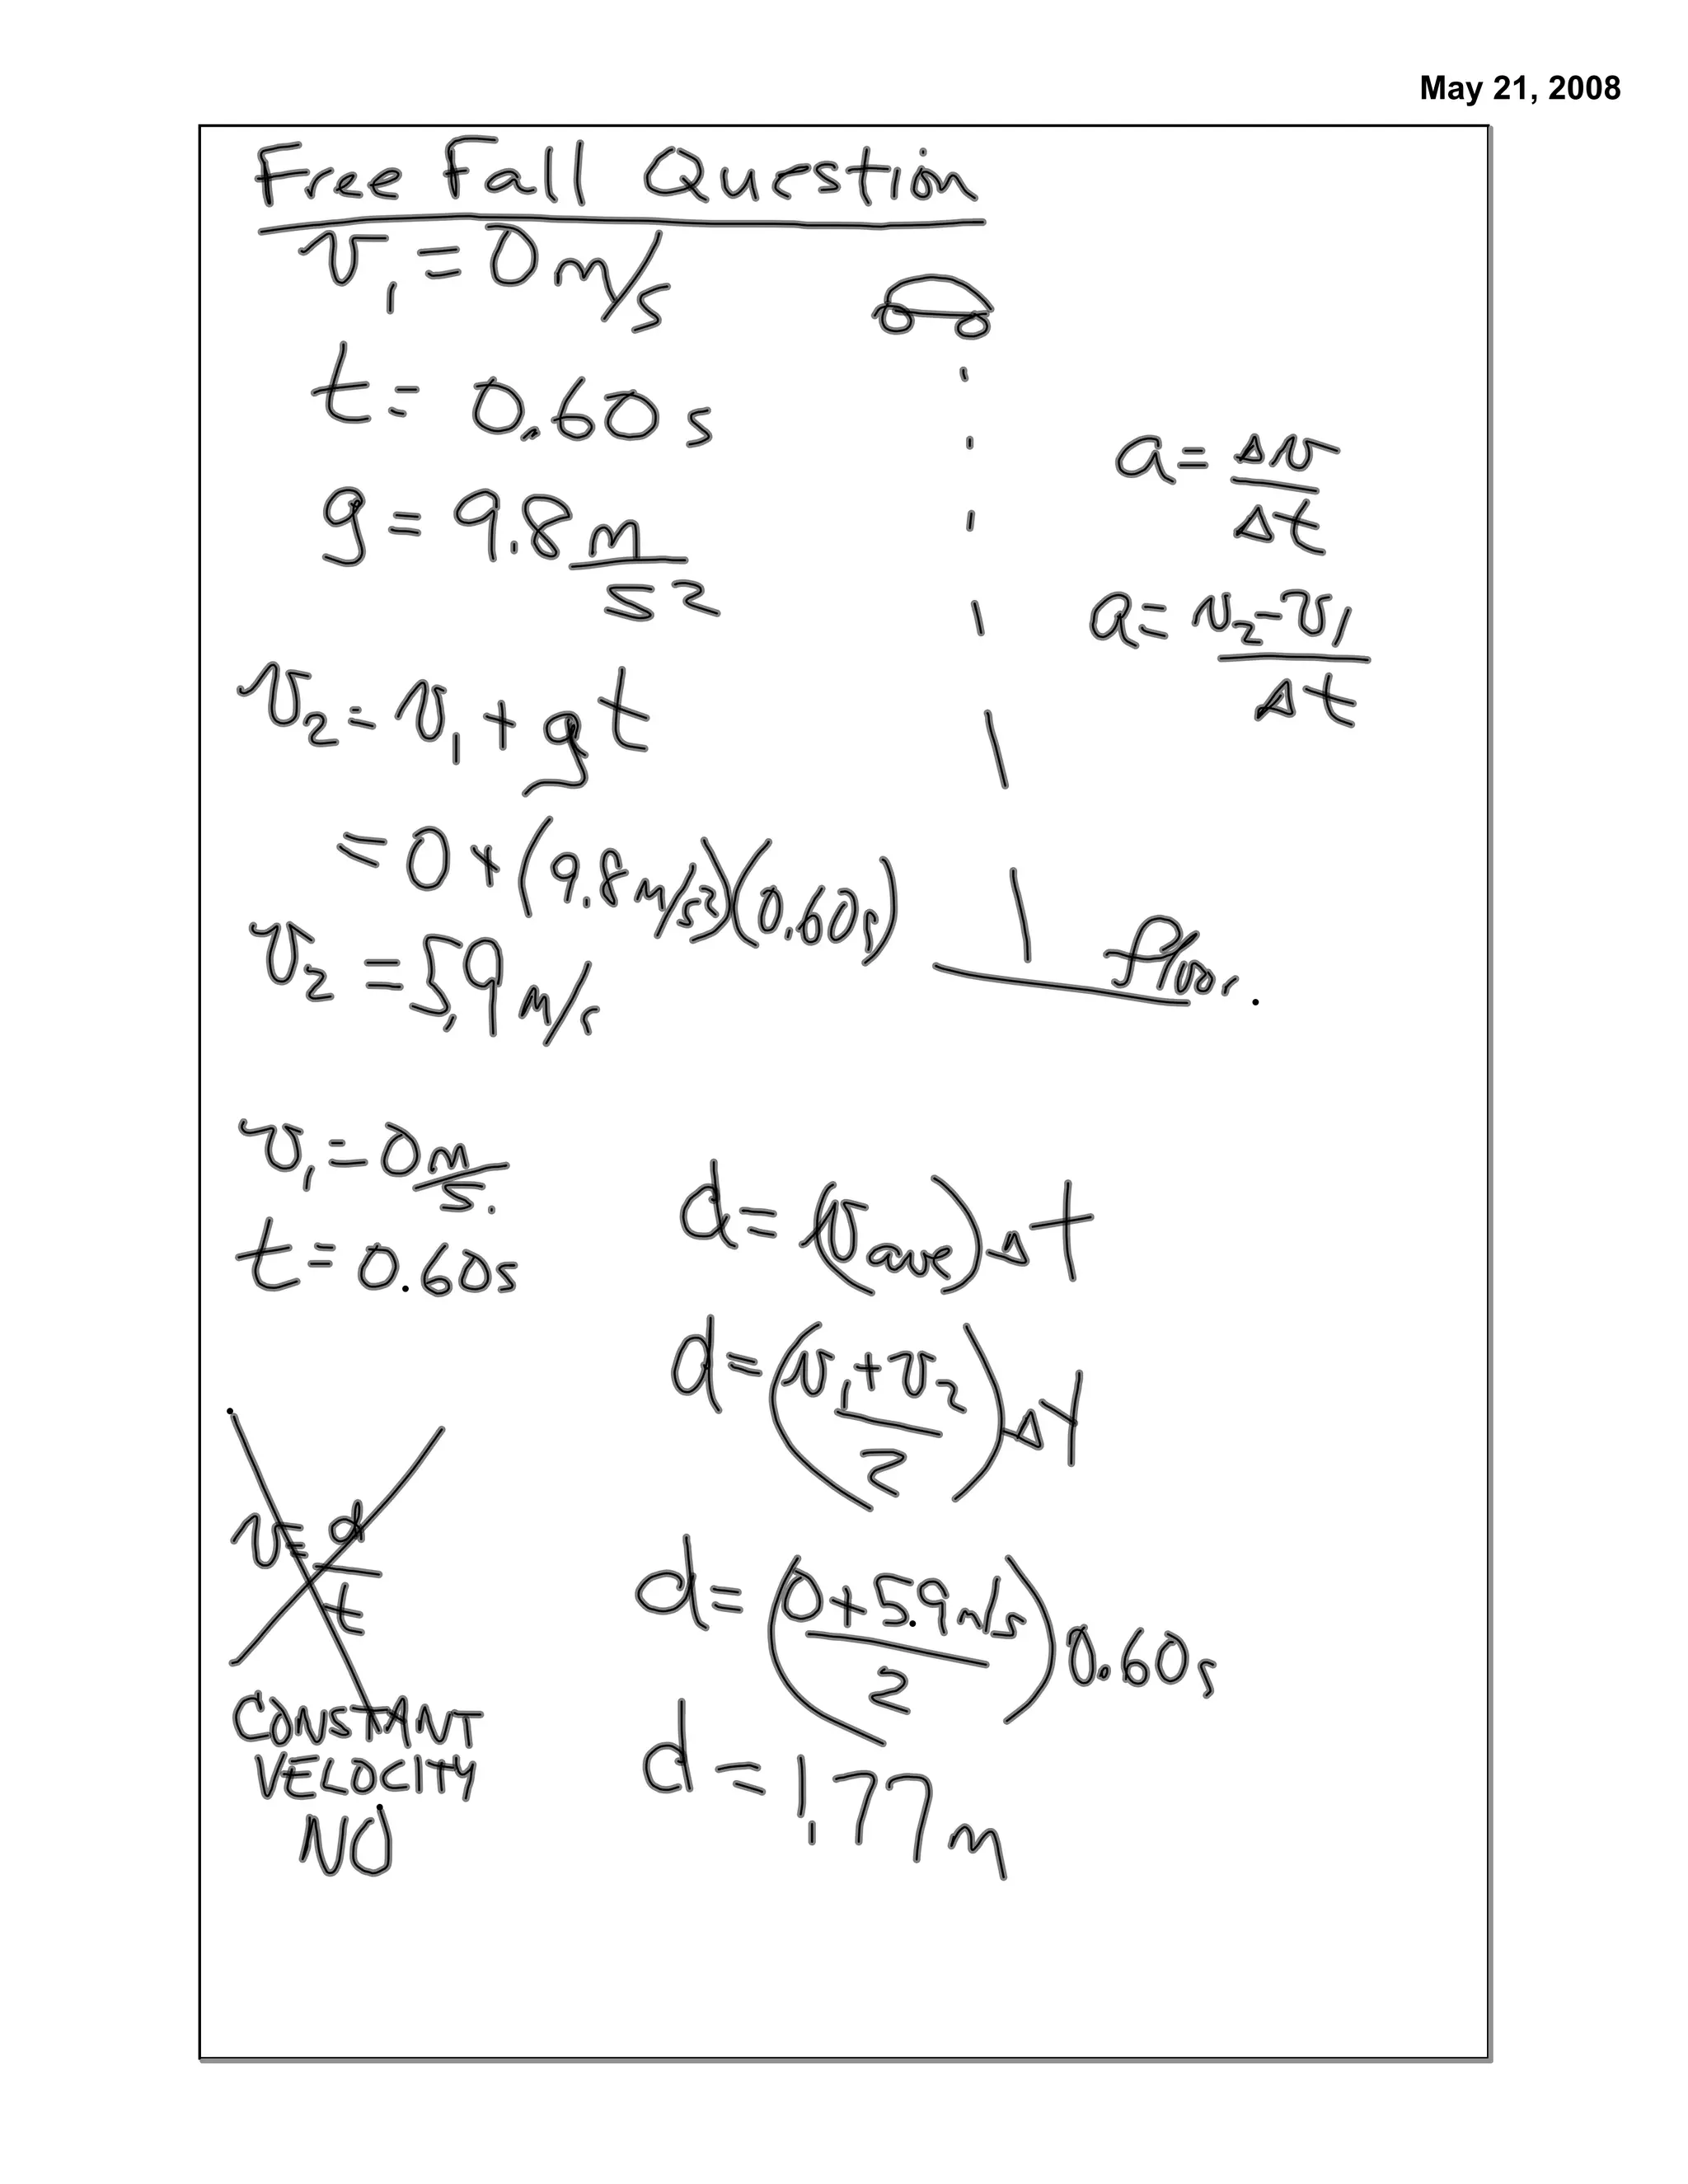 May 21, 2008
Free Fall Question
v₁ = 0 m/s
t = 0.60 s
g = 9.8 m/s²
a = Δv/Δt
a = v₂-v₁/Δt
v₂ = v₁ + gt
= 0 + (9.8 m/s²)(0.60s)
v₂ = 5.9 m/s
floor.
v₁ = 0 m/s.
t = 0.60s
d = (v ave) Δt
d = (v₁+v₂/2) Δt
v = d/t
CONSTANT
VELOCITY
NO
d = (0+5.9m/s/2) 0.60s
d = 1.77 m